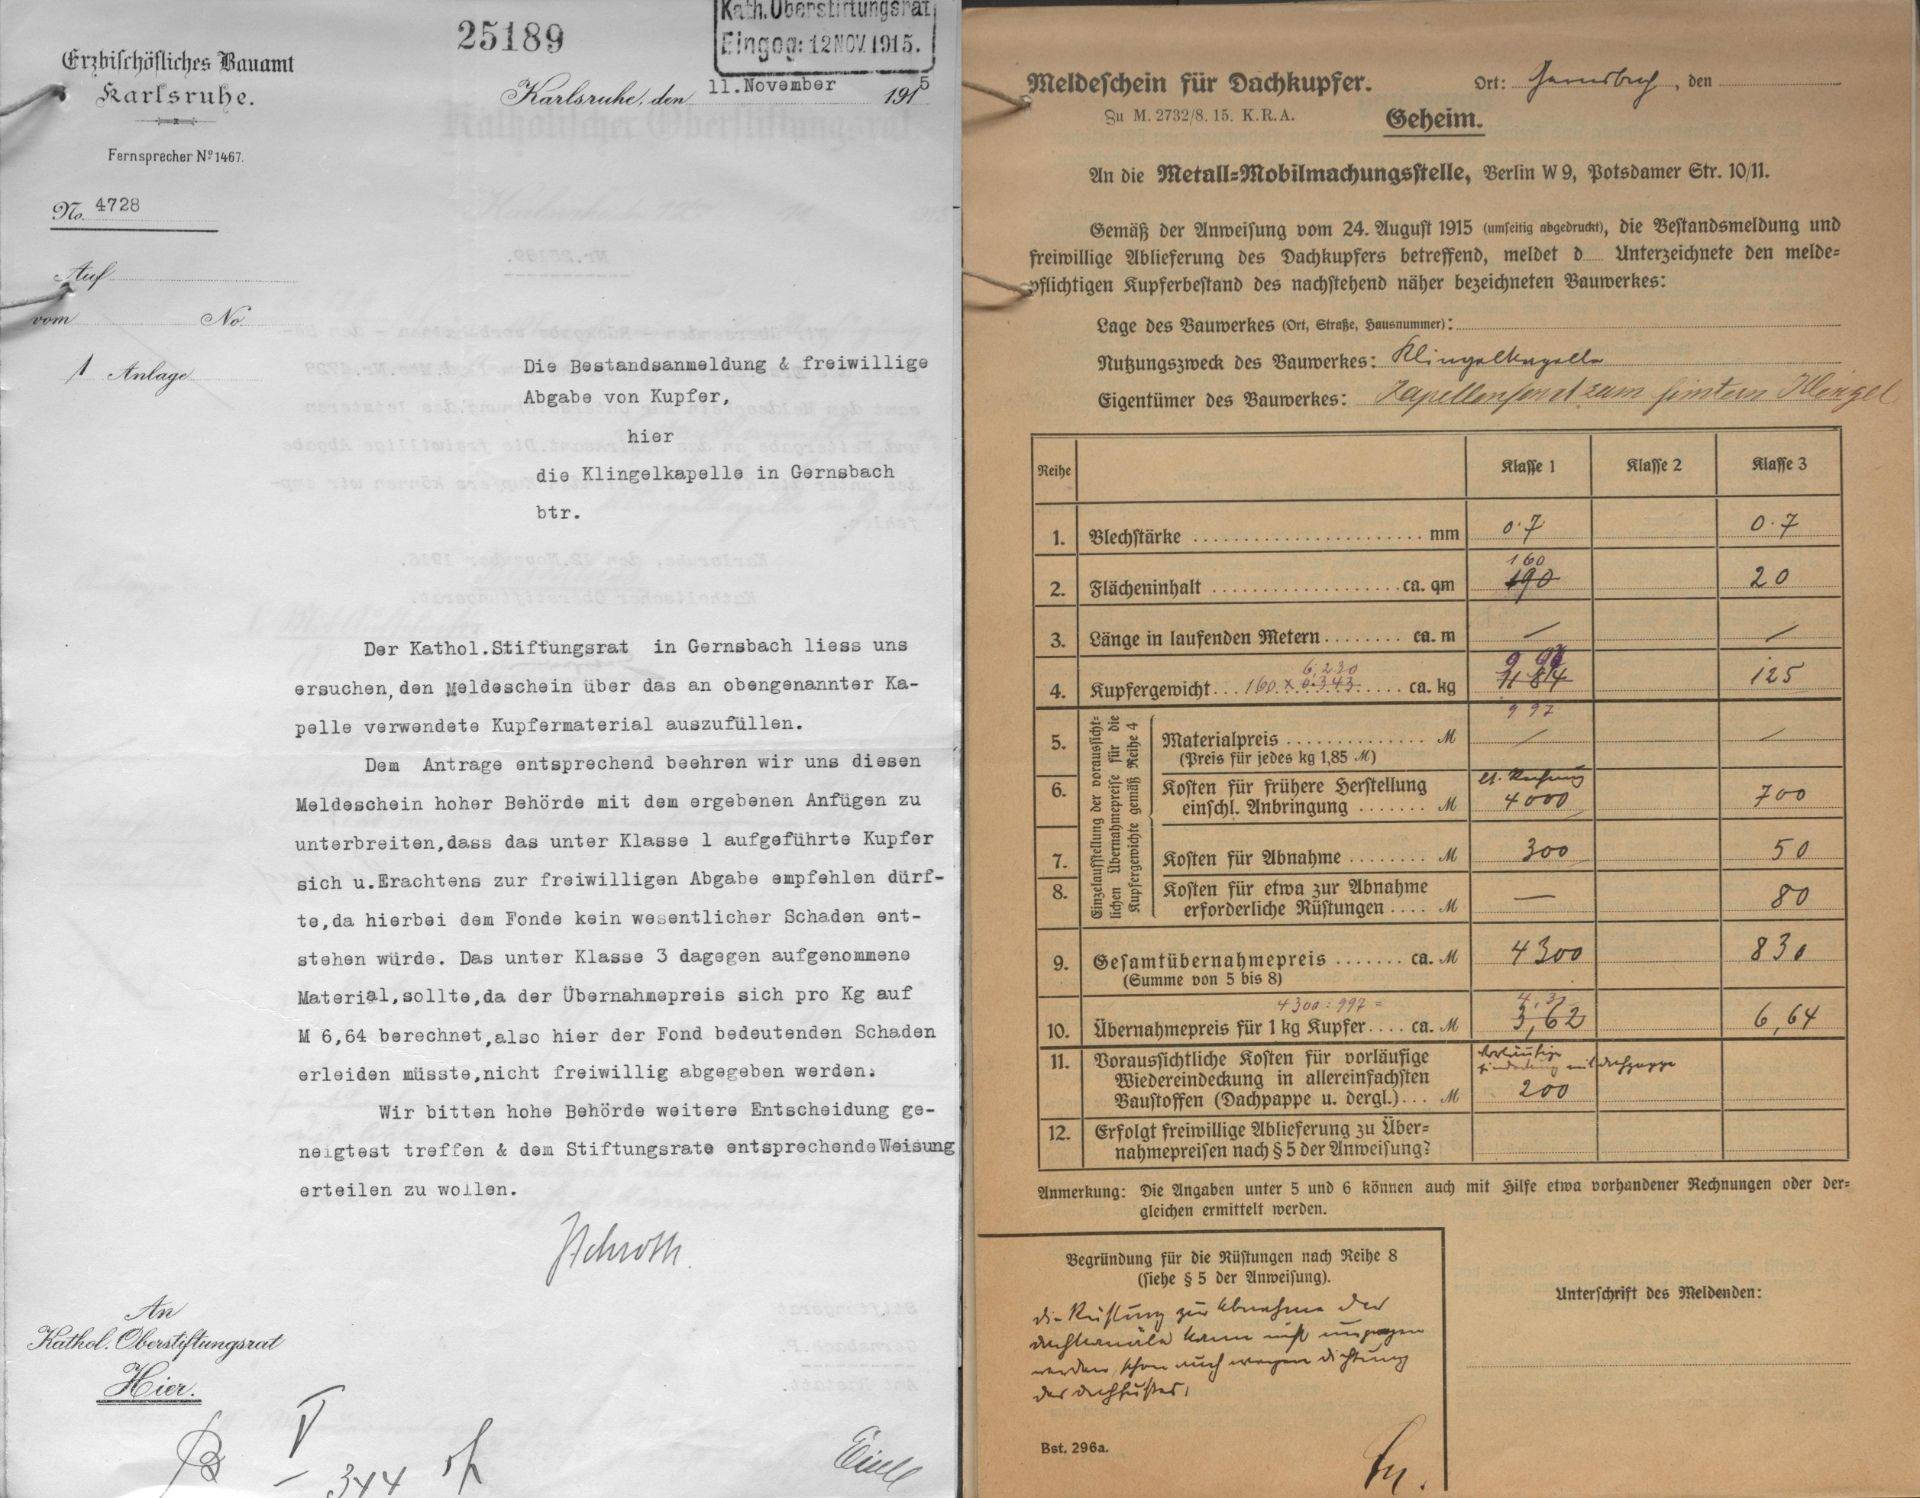 25189
Kath. Oberstiftungsrat
Eingog: 12 NOV. 1915.
Erzbischöfliches Bauamt
Karlsruhe.
Karlsruhe, den 11. November 1915
Fernsprecher Nº 1467.
No. 4728
Auf
vom No.
1 Anlage
Die Bestandsanmeldung & freiwillige
Abgabe von Kupfer,
hier
die Klingelkapelle in Gernsbach
btr.
Der Kathol. Stiftungsrat in Gernsbach liess uns
ersuchen, den Meldeschein über das an obengenannter Ka-
pelle verwendete Kupfermaterial auszufüllen.
Dem Antrage entsprechend beehren wir uns diesen
Meldeschein hoher Behörde mit dem ergebenen Anfügen zu
unterbreiten, dass das unter Klasse 1 aufgeführte Kupfer
sich u. Erachtens zur freiwilligen Abgabe empfehlen dürf-
te, da hierbei dem Fonde kein wesentlicher Schaden ent-
stehen würde. Das unter Klasse 3 dagegen aufgenommene
Material, sollte, da der Übernahmepreis sich pro Kg auf
M 6,64 berechnet, also hier der Fond bedeutenden Schaden
erleiden müsste, nicht freiwillig abgegeben werden.
Wir bitten hohe Behörde weitere Entscheidung ge-
neigtest treffen & dem Stiftungsrate entsprechende Weisung
erteilen zu wollen.
Schroth.
An
Kathol. Oberstiftungsrat
Hier.
V
344
Meldeschein für Dachkupfer.
Ort: Gernsbach, den
Zu M. 2732/8. 15. K.R.A.
Geheim.
An die Metall-Mobilmachungsstelle, Berlin W 9, Potsdamer Str. 10/11.
Gemäß der Anweisung vom 24. August 1915 (umseitig abgedruckt), die Bestandsmeldung und
freiwillige Ablieferung des Dachkupfers betreffend, meldet d Unterzeichnete den melde-
pflichtigen Kupferbestand des nachstehend näher bezeichneten Bauwerkes:
Lage des Bauwerkes (Ort, Straße, Hausnummer):
Nutzungszweck des Bauwerkes: Klingelkapelle
Eigentümer des Bauwerkes: Kapellenfond zum finstern Klingel
Reihe Klasse 1 Klasse 2 Klasse 3
1. Blechstärke mm 0.7 0.7
160
2. Flächeninhalt ca. qm 190 20
3. Länge in laufenden Metern ca. m — —
6,230 997
4. Kupfergewicht 160 x 6.343 ca. kg 1184 125
997
Einzelaufstellung der voraussicht-
lichen Übernahmepreise für die
Kupfergewichte gemäß Reihe 4
5. Materialpreis M — —
(Preis für jedes kg 1,85 M)
6. Kosten für frühere Herstellung lt. Rechnung
einschl. Anbringung M 4000 700
7. Kosten für Abnahme M 300 50
8. Kosten für etwa zur Abnahme
erforderliche Rüstungen M — 80
9. Gesamtübernahmepreis ca. M 4300 830
(Summe von 5 bis 8)
4300 : 997 =
10. Übernahmepreis für 1 kg Kupfer ca. M 3,62 6,64
11. Voraussichtliche Kosten für vorläufige
Wiedereindeckung in allereinfachsten
Baustoffen (Dachpappe u. dergl.) M 200
vorläufige
Eindeckung mit Dachpappe
12. Erfolgt freiwillige Ablieferung zu Über-
nahmepreisen nach § 5 der Anweisung?
Anmerkung: Die Angaben unter 5 und 6 können auch mit Hilfe etwa vorhandener Rechnungen oder der-
gleichen ermittelt werden.
Begründung für die Rüstungen nach Reihe 8
(siehe § 5 der Anweisung).
die Rüstung zur Abnahme der
Dachkanäle kann nicht umgangen
werden, schon auch wegen Dichtung
des Dachfußes.
Unterschrift des Meldenden:
Bst. 296a.